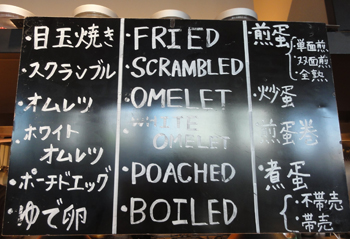 ・目玉焼き
・スクランブル
・オムレツ
・ホワイト
オムレツ
・ポーチドエッグ
・ゆで卵
・FRIED
・SCRAMBLED
・OMELET
・WHITE
OMELET
・POACHED
・BOILED
・煎蛋
・単面煎
・双面煎
・全熟
・炒蛋
・煎蛋巻
・煮蛋
・不帯売
・帯売